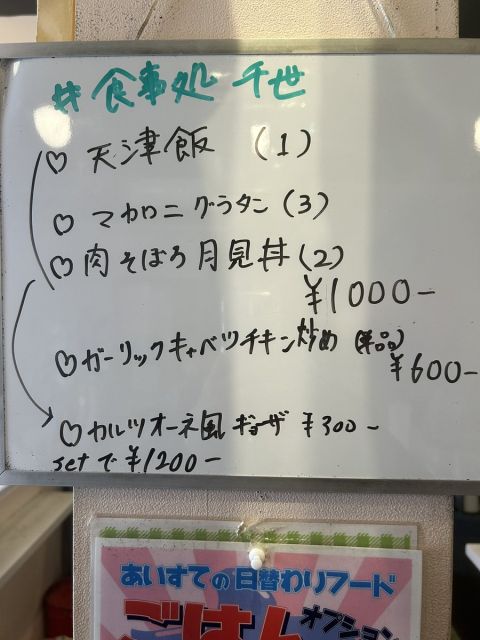 # 食事処 千世
♡ 天津飯 (1)
♡ マカロニグラタン (3)
♡ 肉そぼろ月見丼 (2)
¥1000-
♡ ガーリックキャベツチキン炒め (単品)
¥600-
♡ カルツオーネ風ギョーザ ¥300-
setで¥1200-
あいすての日替わりフード
ごはん
オプション